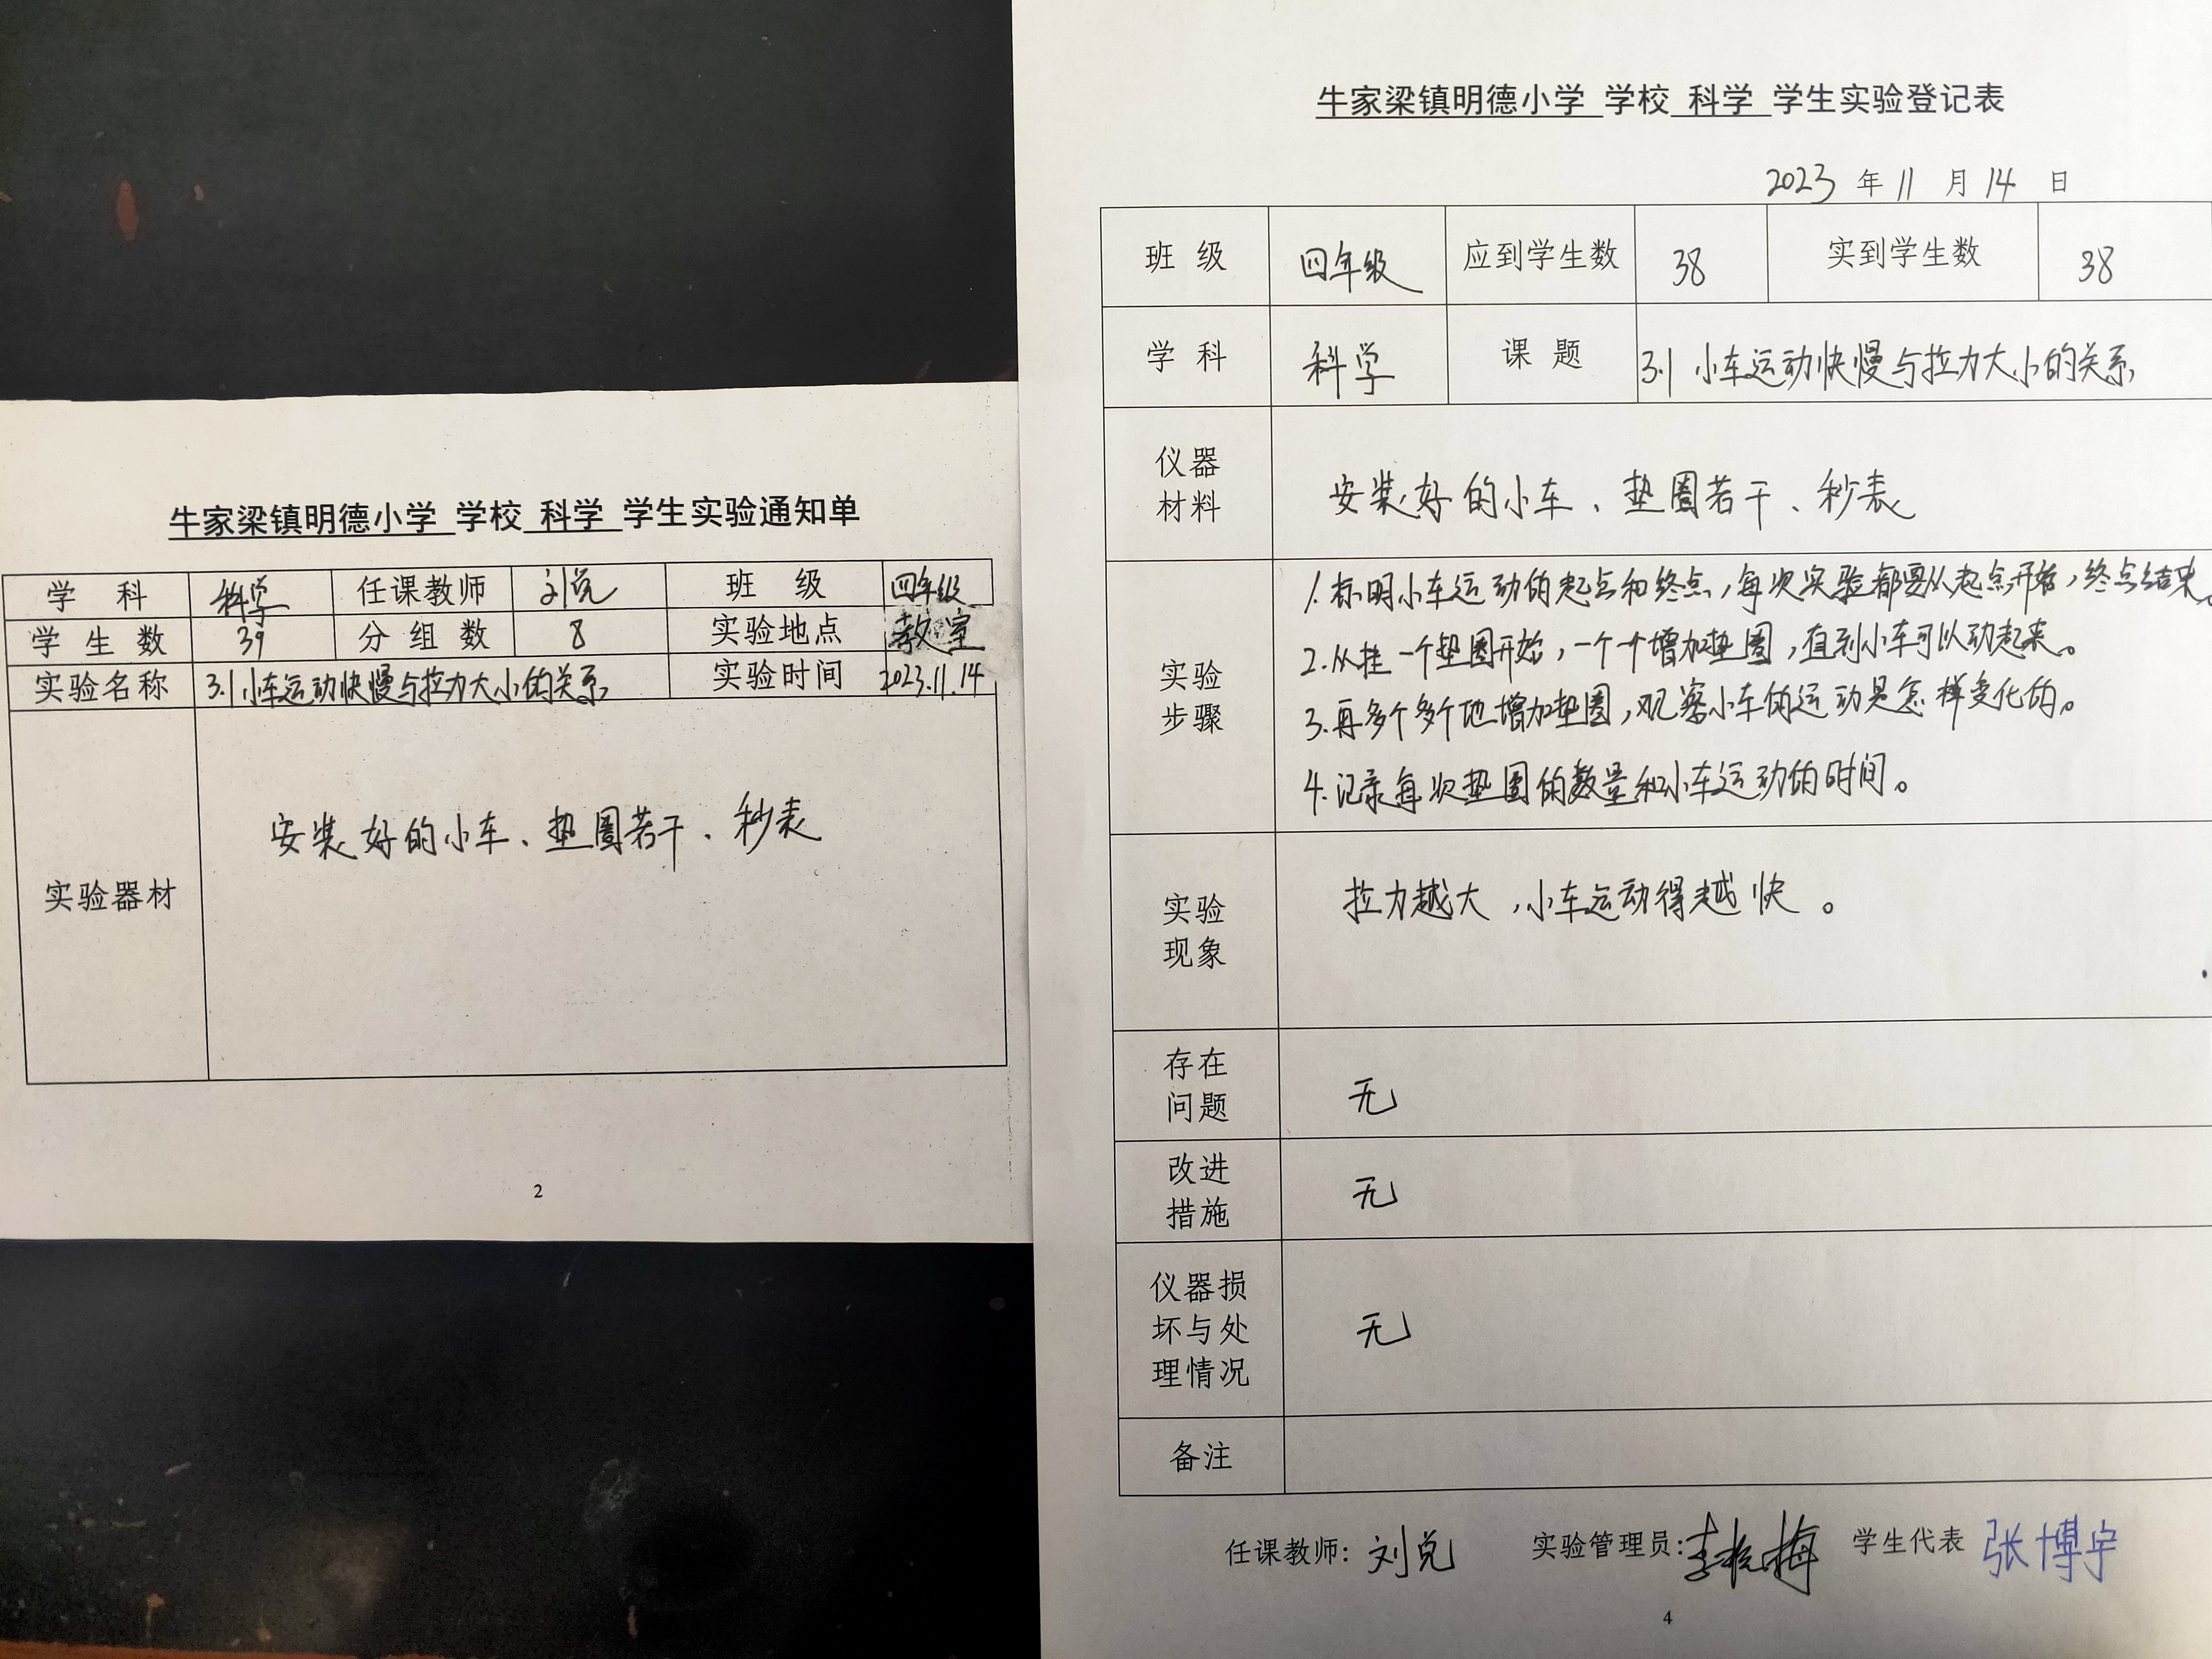 牛家梁镇明德小学 学校 科学 学生实验通知单
学 科 科学 任课教师 刘兑 班 级 四年级
学 生 数 39 分 组 数 8 实验地点 教室
实验名称 3.1小车运动快慢与拉力大小的关系 实验时间 2023.11.14
实验器材 安装好的小车、垫圈若干、秒表
2
牛家梁镇明德小学 学校 科学 学生实验登记表
2023 年 11 月 14 日
班 级 四年级 应到学生数 38 实到学生数 38
学 科 科学 课 题 3.1 小车运动快慢与拉力大小的关系
仪器
材料
安装好的小车、垫圈若干、秒表
实验
步骤
1.标明小车运动的起点和终点,每次实验都要从起点开始,终点结束。
2.从挂一个垫圈开始,一个个增加垫圈,直到小车可以动起来。
3.再多个多个地增加垫圈,观察小车的运动是怎样变化的。
4.记录每次垫圈的数量和小车运动的时间。
实验
现象
拉力越大,小车运动得越快。
存在
问题
无
改进
措施
无
仪器损
坏与处
理情况
无
备注
任课教师: 刘兑 实验管理员: 学生代表 张博宇
4